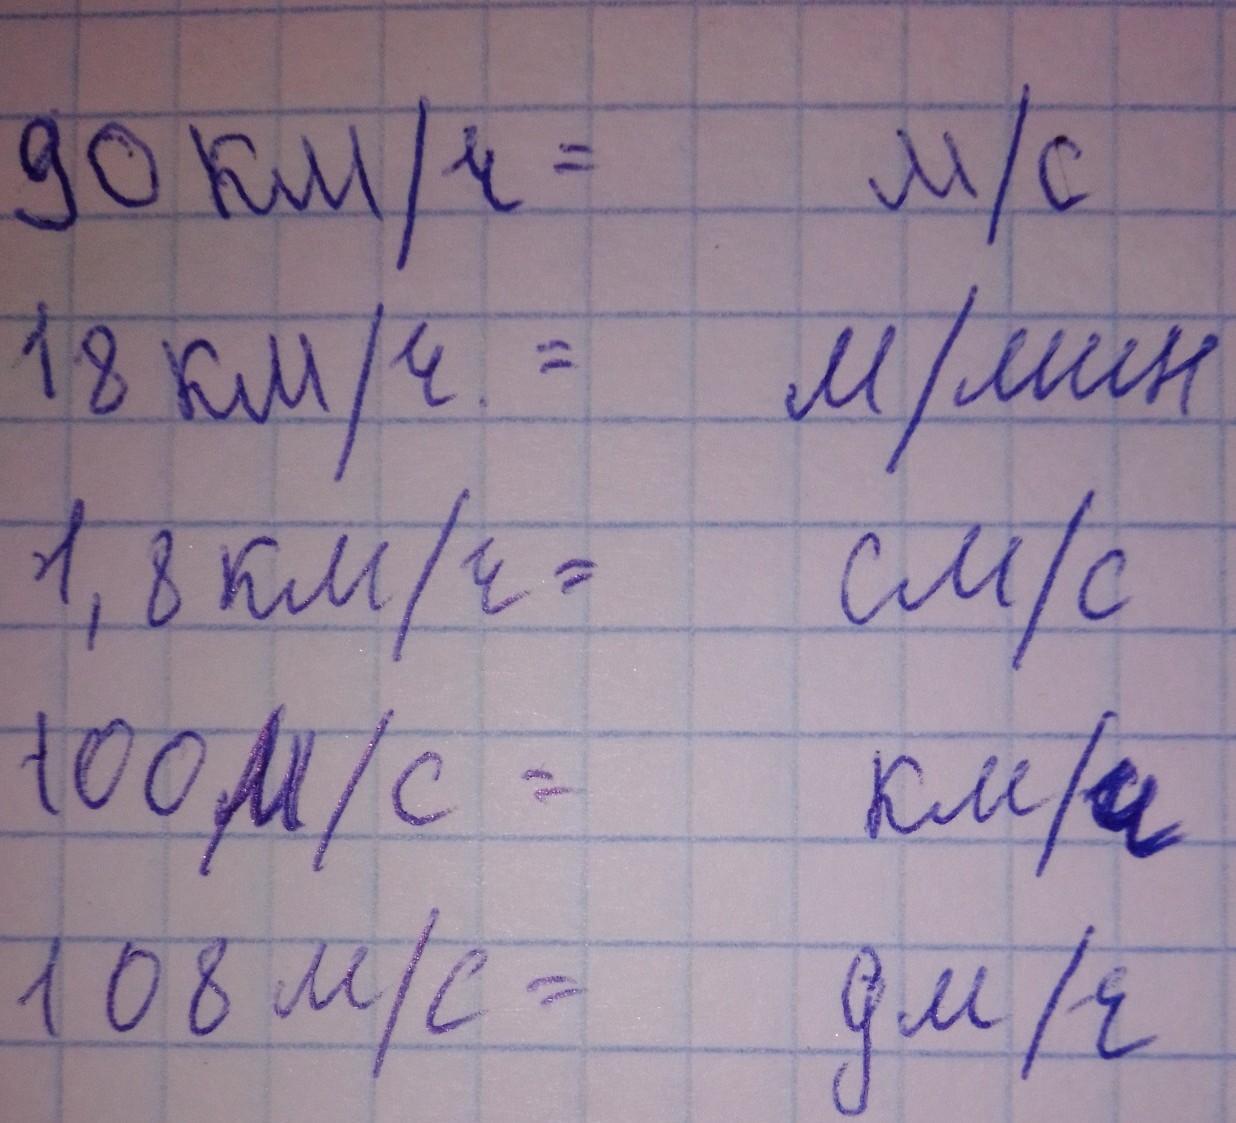 90 км/ч = м/с
18 км/ч. = м/мин
1,8 км/ч = см/с
100 м/с = км/ч
108 м/с = дм/ч